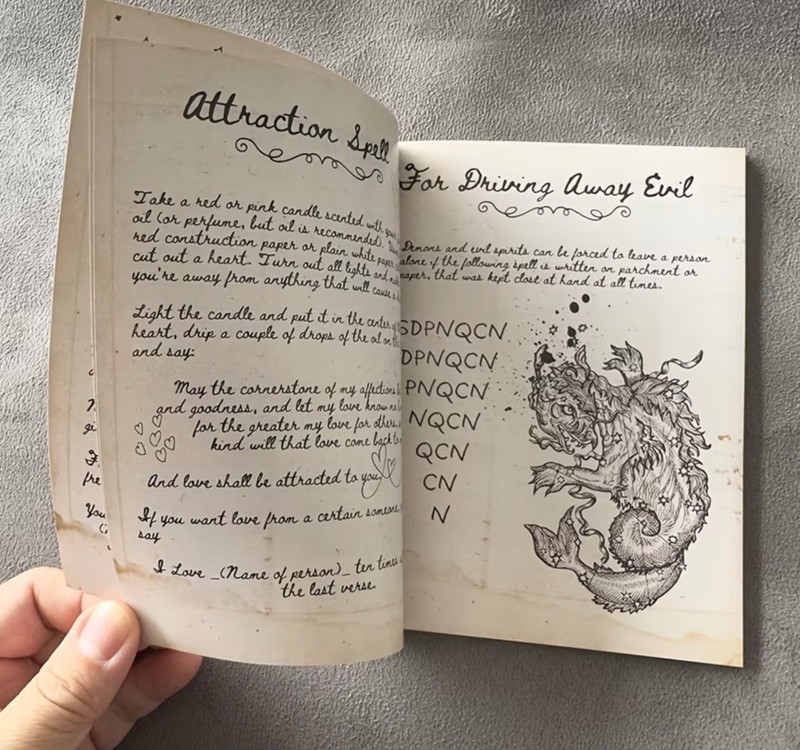 Attraction Spell
Take a red or pink candle scented with
oil (or perfume, but oil is recommended).
red construction paper or plain white paper
cut out a heart. Turn out all lights and
you're away from anything that will cause
Light the candle and put it in the center
heart, drip a couple of drops of the oil on
and say:
May the cornerstone of my affections
and goodness, and let my love know no
for the greater my love for others,
kind will that love come back to
And love shall be attracted to you.
If you want love from a certain someone
say
I Love _(Name of person)_ ten times
the last verse.
For Driving Away Evil
Demons and evil spirits can be forced to leave a person
alone if the following spell is written on parchment or
paper, that was kept close at hand at all times.
SDPNQCN
DPNQCN
PNQCN
NQCN
QCN
CN
N
You